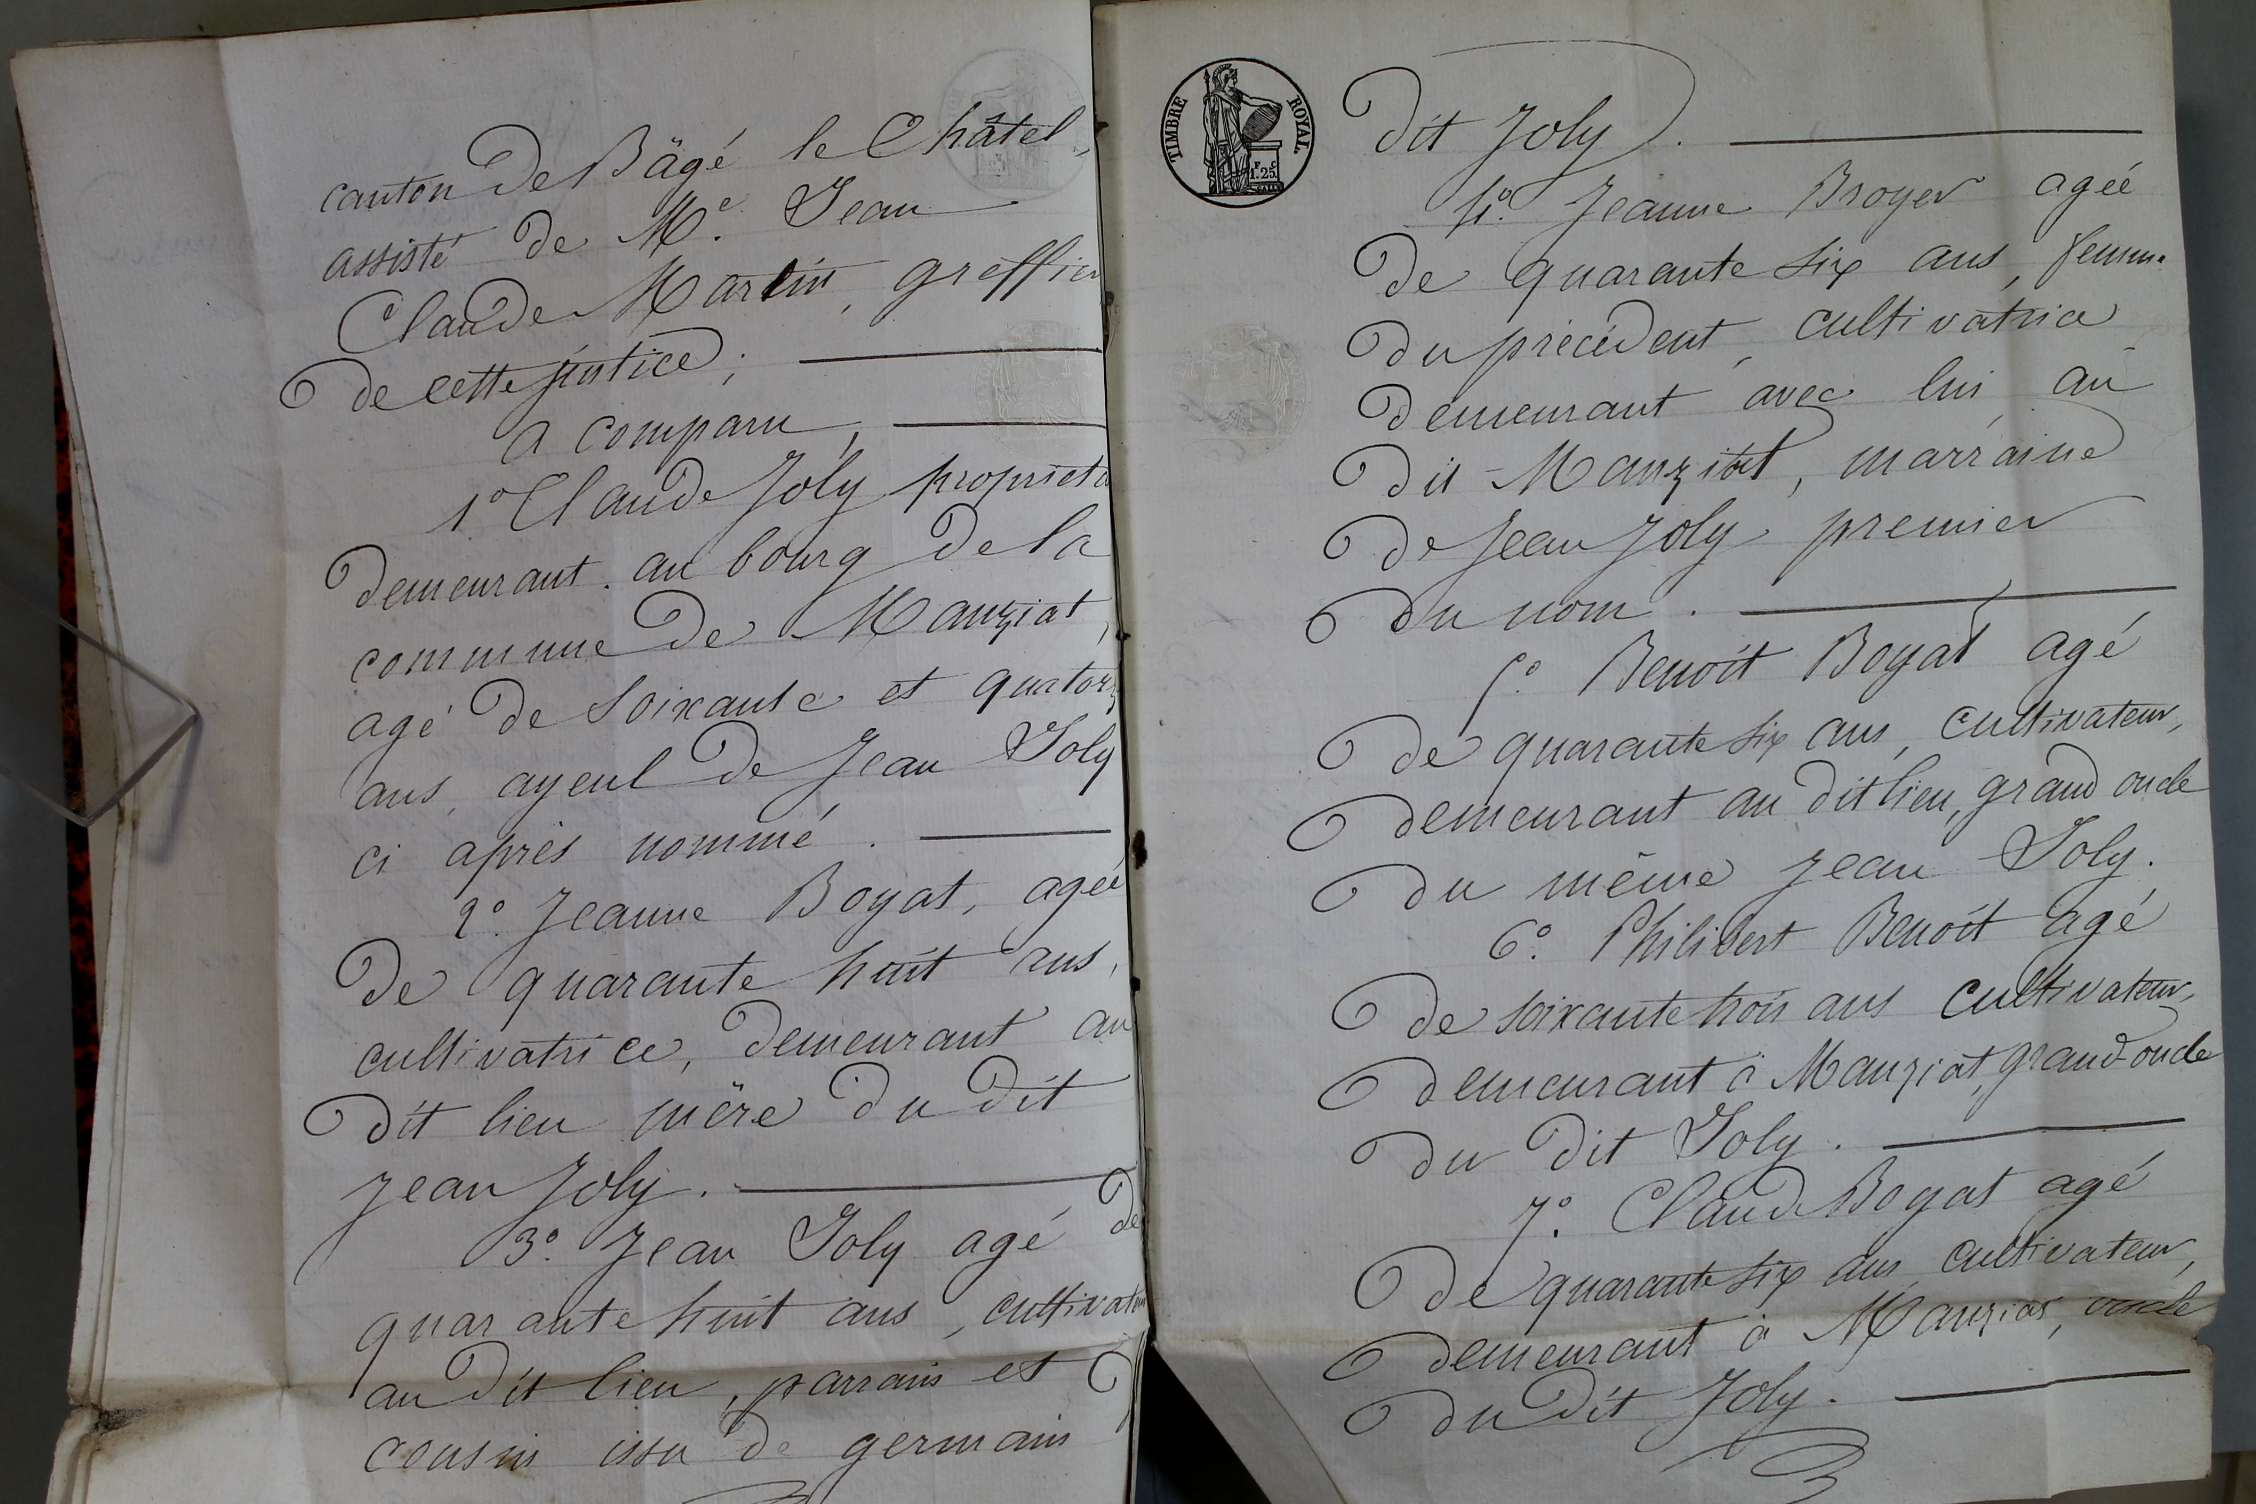 canton de Bâgé le Châtel,
assisté de Me. Jean
Claude Martin, greffier
de cette justice;
a comparu,
1o Claude Joly propriet
demeurant au bourg de la
commune de Manziat,
agé de soixante et quatorz
ans, ayeul de Jean Joly
ci après nommé.
2o. Jeanne Boyat, agée
de quarante huit ans,
cultivatrice, demeurant au
dit lieu mère du dit
Jean Joly.
3o. Jean Joly agé de
quarante huit ans, cultivateur
au dit lieu, parrain et
cousin issu de germain
TIMBRE ROYAL.
F. C.
1. 25.
dit Joly.
4o. Jeanne Broyer agée
de quarante six ans, femme
du précédent, cultivatrice
demeurant avec lui au
dit Manziat, marraine
de Jean Joly premier
du nom.
5o. Benoit Boyat agé
de quarante six ans, cultivateur,
demeurant au dit lieu, grand oncle
du même Jean Joly.
6o. Philibert Benoit agé
de soixante trois ans cultivateur,
demeurant à Manziat, grand-oncle
du dit Joly.
7o. Claude Boyat agé
de quarante six ans cultivateur,
demeurant à Manziat, oncle
du dit Joly.